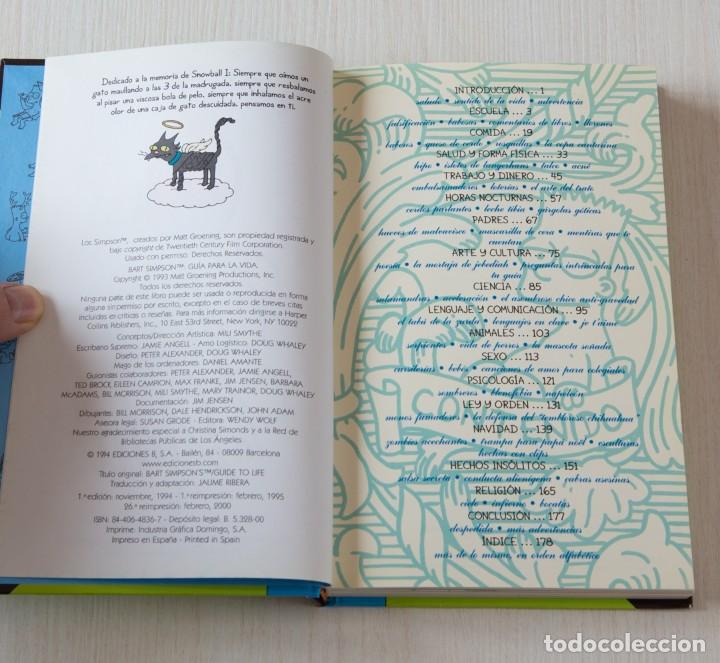 Dedicado a la memoria de Snowball I: Siempre que oímos un
gato maullando a las 3 de la madrugada, siempre que resbalamos
al pisar una viscosa bola de pelo, siempre que inhalamos el acre
olor de una caja de gato descuidada, pensamos en ti.
Los Simpson™, creados por Matt Groening, son propiedad registrada y
bajo copyright de Twentieth Century Film Corporation.
Usado con permiso. Derechos Reservados.
BART SIMPSON™: GUÍA PARA LA VIDA.
Copyright © 1993 Matt Groening Productions, Inc.
Todos los derechos reservados.
Ninguna parte de este libro puede ser usada o reproducida en forma
alguna sin permiso por escrito, excepto en el caso de breves citas
incluidas en críticas o reseñas. Para más información dirigirse a Harper
Collins Publishers, Inc., 10 East 53rd Street, New York, NY 10022
Conceptos/Dirección Artística: MILI SMYTHE
Escribano Supremo: JAMIE ANGELL - Amo Logístico: DOUG WHALEY
Diseño: PETER ALEXANDER, DOUG WHALEY
Mago de los ordenadores: DANIEL AMANTE
Guionistas colaboradores: PETER ALEXANDER, JAMIE ANGELL,
TED BROCK, EILEEN CAMPION, MAX FRANKE, JIM JENSEN, BARBARA
McADAMS, BILL MORRISON, MILI SMYTHE, MARY TRAINOR, DOUG WHALEY
Documentación: JIM JENSEN
Dibujantes: BILL MORRISON, DALE HENDRICKSON, JOHN ADAM
Asesora legal: SUSAN GRODE - Editora: WENDY WOLF
Nuestro agradecimiento especial a Christina Simonds y a la Red de
Bibliotecas Públicas de Los Ángeles
© 1994 EDICIONES B, S.A. - Bailén, 84 - 08009 Barcelona
www.edicionesb.com
Título original: BART SIMPSON'S™/GUIDE TO LIFE
Traducción y adaptación: JAUME RIBERA
1.ª edición: noviembre, 1994 - 1.ª reimpresión: febrero, 1995
26.ª reimpresión: febrero, 2000
ISBN: 84-406-4836-7 - Depósito legal: B. 5.328-00
Imprime: Industria Gráfica Domingo, S.A.
Impreso en España - Printed in Spain
INTRODUCCIÓN ... 1
saludo • sentido de la vida • advertencia
ESCUELA ... 3
falsificación • babosas • comentarios de libros • llorones
COMIDA ... 19
baberos • queso de cerdo • rosquillas • la copa cantarina
SALUD Y FORMA FÍSICA ... 33
hipo • islotes de langerhans • talco • acné
TRABAJO Y DINERO ... 45
embalsamadores • loterías • el arte del trato
HORAS NOCTURNAS ... 57
cerditos parlantes • leche tibia • gárgolas góticas
PADRES ... 67
huecos de malvavisco • mascarilla de cera • mentiras que te
cuentan
ARTE Y CULTURA ... 75
poesía • la mortaja de jebediah • preguntas intrincadas para
tu guía
CIENCIA ... 85
salamandras • aceleración • el asombroso chico antigravedad
LENGUAJE Y COMUNICACIÓN ... 95
el tabú de la zurda • lenguajes en clave • je t'aime
ANIMALES ... 103
serpientes • vida de perros • el mascota soñada
SEXO ... 113
cursilerías • bebés • canciones de amor para colegiales
PSICOLOGÍA ... 121
sombreros • blenofobia • napoleón
LEY Y ORDEN ... 131
monos fumadores • la defensa del "tembloroso chihuahua"
NAVIDAD ... 139
zombies acechantes • trampa para papá noël • esculturas
hechas con clips
HECHOS INSÓLITOS ... 151
salsa secreta • conducta alienígena • cabras asesinas
RELIGIÓN ... 165
cielo • infierno • bocatas
CONCLUSIÓN ... 177
despedida • más advertencias
ÍNDICE ... 178
más de lo mismo, en orden alfabético
todocoleccion